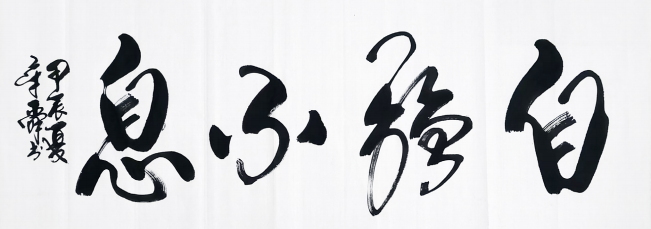 自强不息
甲辰夏